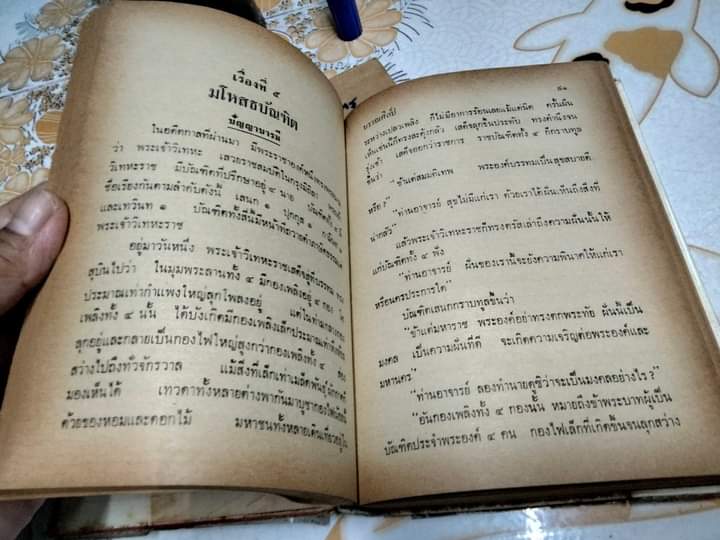 เรื่องที่ ๕
มโหสธบัณฑิต
ปัญญาบารมี
ในอดีตกาลที่ผ่านมา มีพระราชาองค์หนึ่ง
ว่า พระเจ้าวิเทหะ เสวยราชสมบัติในกรุงมิถิลา
วิเทหะราช มีบัณฑิตที่ปรึกษาอยู่ ๔ นาย
ชื่อเรียงกันตามลำดับดังนี้ เสนก ๑ ปุกกุส ๑
และเทวินท ๑ บัณฑิตทั้งสี่นี้มีหน้าที่
พระเจ้าวิเทหะราช
อยู่มาวันหนึ่ง พระเจ้าวิเทหะราชเสด็จสู่ที่บรรทม ทรง
สุบินไปว่า ในมุมพระลานทั้ง ๔ มีกองเพลิงอยู่ ๔ กอง
ประมาณเท่ากำแพงใหญ่ลุกโพลงอยู่ แต่ในท่ามกลางกอง
เพลิงทั้ง ๔ นั้น ได้บังเกิดมีกองเพลิงเล็กประมาณเท่าหิ่งห้อย
ลุกอยู่และกลายเป็นกองไฟใหญ่สูงกว่ากองเพลิงทั้ง ๔ ส่อง
สว่างไปถึงทั่วจักรวาล แม้สิ่งที่เล็กเท่าเมล็ดพันธุ์ผักกาดก็
มองเห็นได้ เทวดาทั้งหลายต่างพากันมาบูชากองไฟน้อยนี้
ด้วยของหอมและดอกไม้ มหาชนทั้งหลายเดินเที่ยวอยู่ใน
๕๑
บรรณศิลป์
ระหว่างเปลวเพลิง ก็ไม่มีอาการร้อนเลยแม้แต่นิด ครั้นฝัน
เห็นเช่นนี้ก็ทรงสะดุ้งกลัว เสด็จลุกขึ้นประทับ ทรงดำริจน
รุ่งเช้า เสด็จออกว่าราชการ ราชบัณฑิตทั้ง ๔ ก็กราบทูล
ขึ้นว่า
"ข้าแต่สมมติเทพ พระองค์บรรทมเป็นสุขสบายดี
หรือ?"
"ท่านอาจารย์ สุขไม่มีแก่เรา ด้วยเราได้ฝันเห็นถึงสิ่งที่
น่ากลัว"
แล้วพระเจ้าวิเทหะราชก็ทรงตรัสเล่าถึงความฝันนั้นให้
แก่บัณฑิตทั้ง ๔ ฟัง
"ท่านอาจารย์ ฝันของเรานี้จะยังความพินาศให้แก่เรา
หรือนครประการใด"
บัณฑิตเสนกกราบทูลขึ้นว่า
"ข้าแต่มหาราช พระองค์อย่าทรงตกพระทัย ฝันนี้เป็น
มงคล เป็นความฝันที่ดี จะเกิดความเจริญต่อพระองค์และ
มหานคร"
"ท่านอาจารย์ ลองทำนายดูซิว่าจะเป็นมงคลอย่างไร?"
"อันกองเพลิงทั้ง ๔ กองนั้น หมายถึงข้าพระบาทผู้เป็น
บัณฑิตประจำพระองค์ ๔ คน กองไฟเล็กที่เกิดขึ้นจนลุกสว่าง